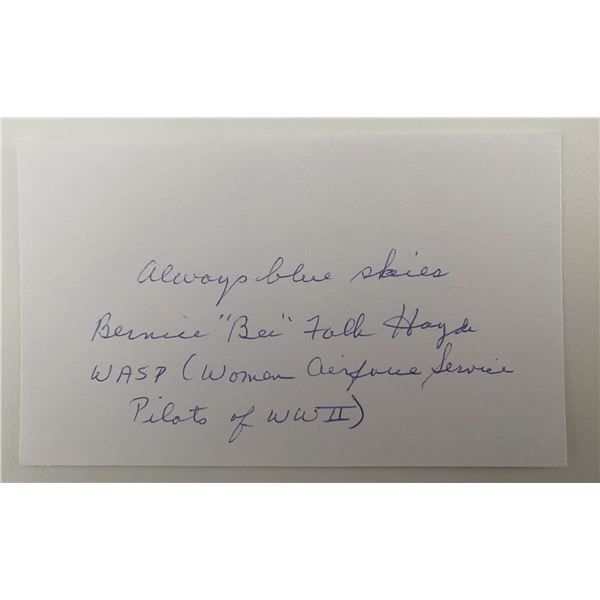 Always blue skies
Bernice "Bee" Falk Haydu
WASP (Women Airforce Service
Pilots of WW II)